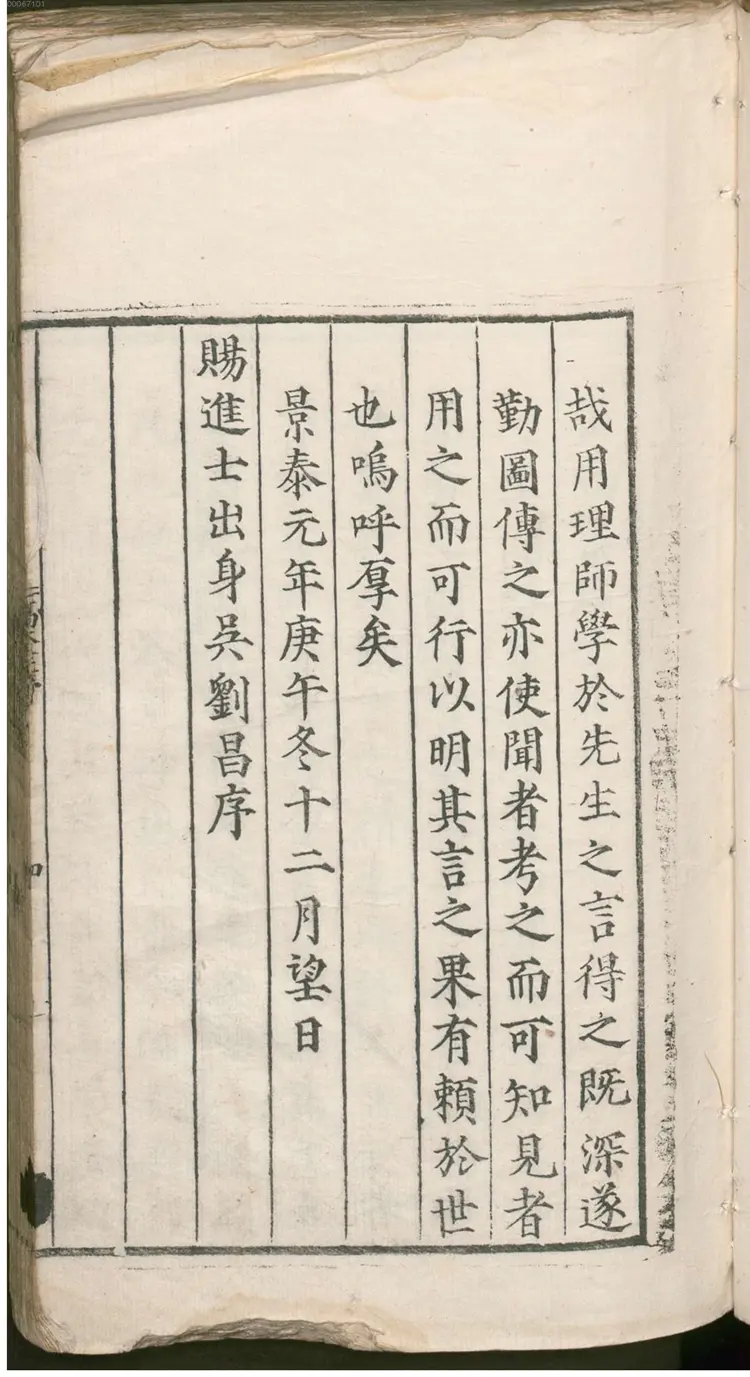 00067101
哉用理師學於先生之言得之既深遂
勤圖傳之亦使聞者考之而可知見者
用之而可行以明其言之果有頼於世
也嗚呼厚矣
景泰元年庚午冬十二月望日
賜進士出身吳劉昌序